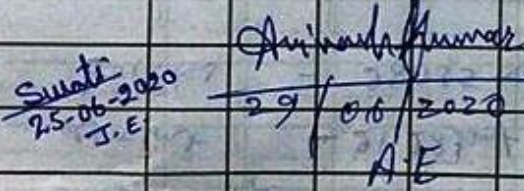 Swati
25-06-2020
J.E
Avinash Kumar
29/06/2020
A.E